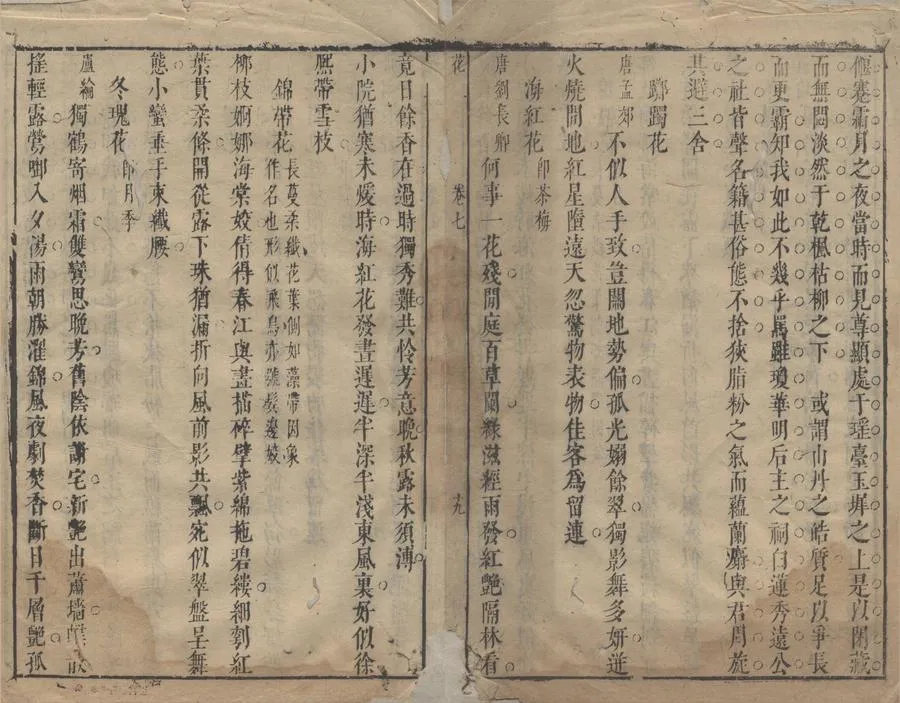 偃蹇霜月之夜當時而見尊顯處于瑤臺玉墀之上是以閉藏
而無悶淡然于乾楓枯柳之下 或謂山丹之皓質足以爭長
而更霸知我如此不幾乎罵雖瓊華明后主之祠白蓮秀遠公
之社皆聲名籍甚俗態不捨狹脂粉之氣而蘊蘭麝與君周旋
其避三舍
躑躅花
唐孟郊 不似人手致豈關地勢偏孤光嫋餘翠獨影舞多妍迸
火燒閒地紅星墮遠天忽驚物表物佳客爲留連
海紅花 即茶梅
唐劉長卿 何事一花殘閒庭百草闌綠滋經雨發紅艷隔林看
花 卷七 十九
竟日餘香在過時獨秀難共憐芳意晚秋露未須漙
小院猶寒未煖時海紅花發晝遲遲半深半淺東風裏好似徐
熙帶雪枝
錦帶花 長蔓柔纖花葉側如藻帶因象
作名也形似飛鳥亦號鬢邊嬌
柳枝婀娜海棠姣倩得春江與畫描碎擘紫綿拖碧縷細刳紅
葉貫柔條開從露下珠猶漏折向風前影共飄宛似翠盤呈舞
態小蠻垂手東纖腰
冬瑰花 即月季
盧綸 獨鶴寄烟霜雙鸞思晚芳舊陰依謝宅新艷出蕭墻
搖輕露鶯啣入夕湯雨朝勝濯錦風夜劇焚香斷日千層艷孤